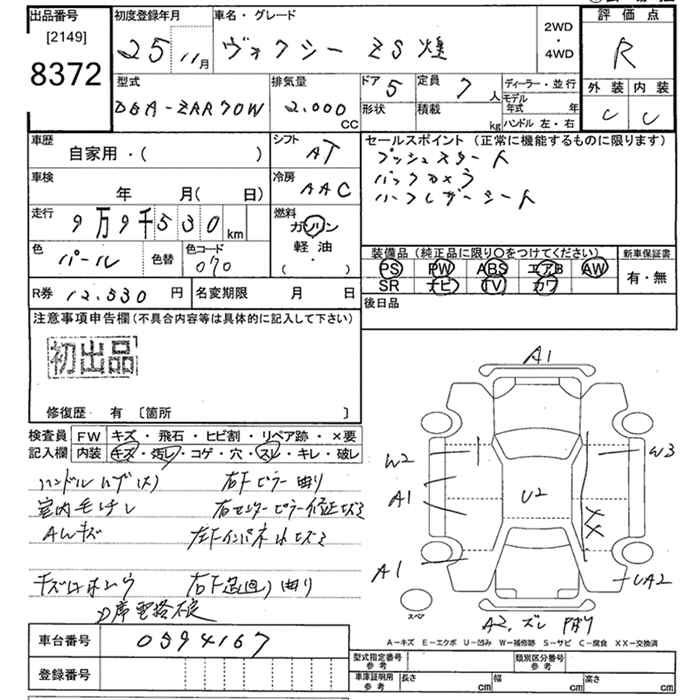 出品番号
[2149]
8372
初度登録年月
25 11月
車名・グレード
ヴォクシー ZS 煌
2WD
・
4WD
評価点
R
外装 内装
C C
型式
DBA-ZRR70W
排気量
2.000
CC
ドア 5
形状
定員 7 人
積載 kg
ディーラー・並行
モデル年式 年
ハンドル 左・右
車歴
自家用・( )
シフト AT
セールスポイント (正常に機能するものに限ります)
プッシュスタート
バックカメラ
ハーフレザーシート
車検 年 月( 日)
冷房 AAC
走行 9万9千530km
燃料
ガソリン
軽油・
( ・ )
色 パール
色替
色コード 070
装備品(純正品に限り〇をつけてください)
新車保証書
PS PW ABS エアB AW
SR ナビ TV カワ
有・無
R券 12.530 円
名変期限 月 日
後日品
注意事項申告欄(不具合内容等は具体的に記入して下さい)
初出品
修復歴・有〔箇所 〕
検査員
記入欄
FW キズ・飛石・ヒビ割・リペア跡・×要
内装 キズ・汚レ・コゲ・穴・スレ・キレ・破レ
右下ピラー曲り
AWキズ
A1
W2
W3
A1
U2
XX
A1
UA2
スペア
A2. ズレ
A-キズ E-エクボ U-凹み W-補修跡 S-サビ C-腐食 XX-交換済
車台番号 0394167
登録番号
型式指定番号
参考
類別区分番号
参考
車庫証明用
参考
長さ cm
幅 cm
高さ cm